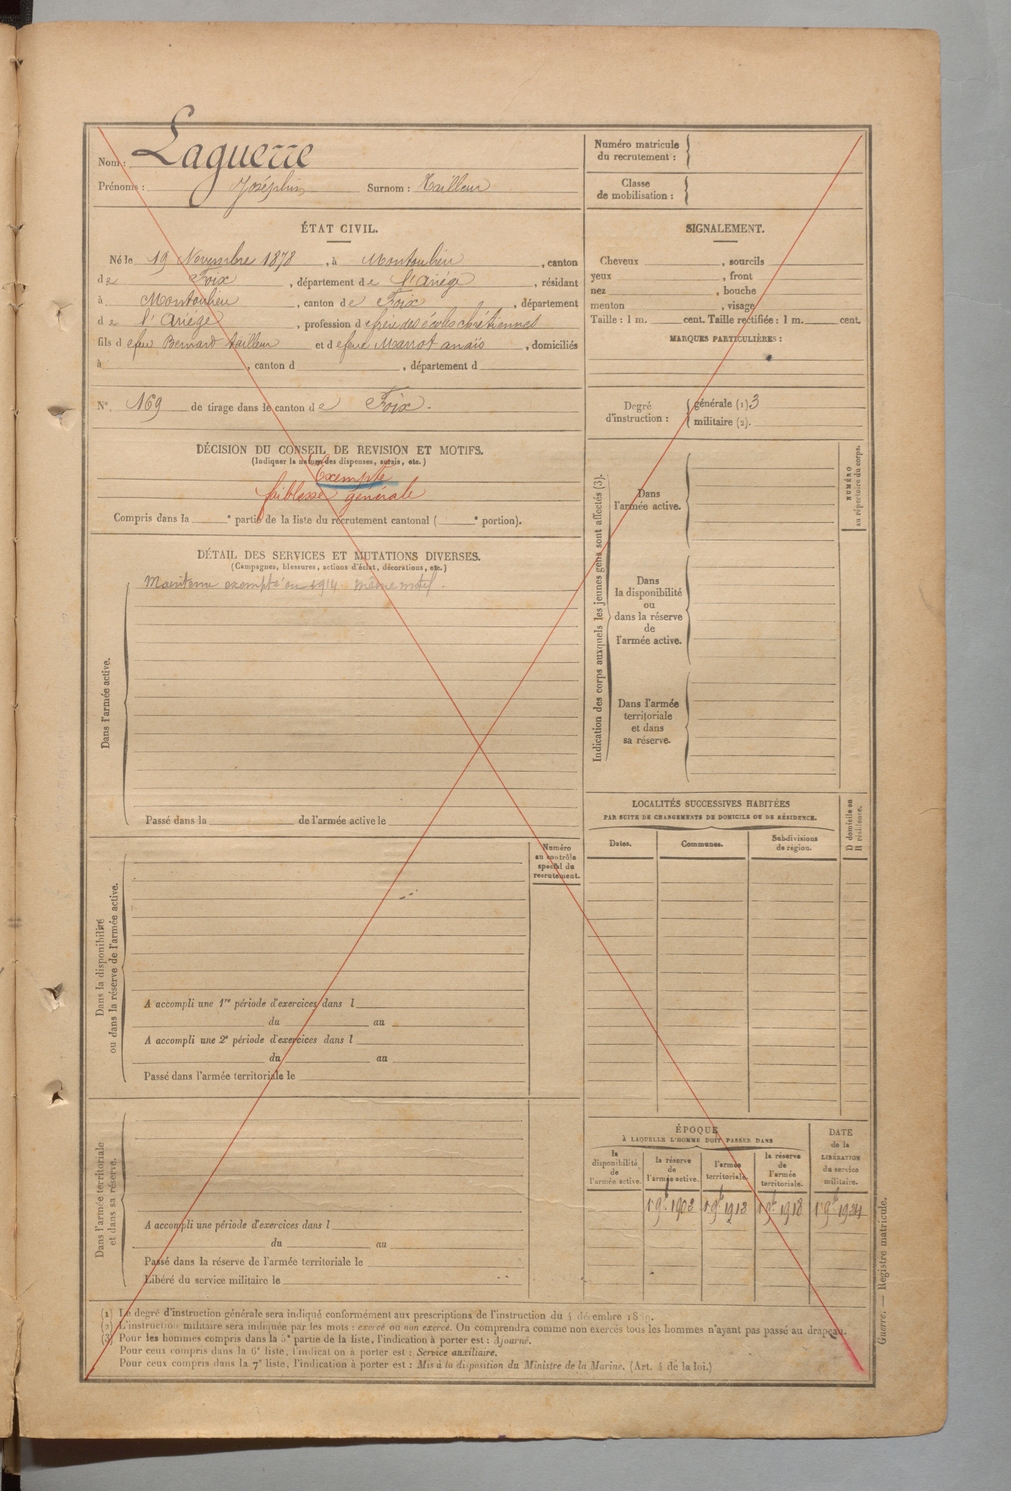 Nom : Laguerre
Prénoms : Joséphin Surnom : Tailleur
ÉTAT CIVIL.
Né le 19 Novembre 1878, à Montoulieu, canton
de Foix, département de l'Ariège, résidant
à Montoulieu, canton de Foix, département
de l'Ariège, profession de frère des écoles chrétiennes
fils de feu Bernard tailleur et de feue Marrot anaïs, domiciliés
à , canton d , département d
N° 169 de tirage dans le canton de Foix.
DÉCISION DU CONSEIL DE REVISION ET MOTIFS.
(Indiquer la nature des dispenses, sursis, etc.)
Exempté
faiblesse générale
Compris dans la e partie de la liste du recrutement cantonal ( e portion).
DÉTAIL DES SERVICES ET MUTATIONS DIVERSES.
(Campagnes, blessures, actions d'éclat, décorations, etc.)
Maintenu exempté en 1914 même motif.
Dans l'armée active.
Passé dans la de l'armée active le
Numéro
au contrôle
spécial du
recrutement.
Dans la disponibilité
ou dans la réserve de l'armée active.
A accompli une 1re période d'exercices dans l
du au
A accompli une 2e période d'exercices dans l
du au
Passé dans l'armée territoriale le
Dans l'armée territoriale
et dans sa réserve.
A accompli une période d'exercices dans l
du au
Passé dans la réserve de l'armée territoriale le
Libéré du service militaire le
Numéro matricule
du recrutement :
Classe
de mobilisation :
SIGNALEMENT.
Cheveux , sourcils
yeux , front
nez , bouche
menton , visage
Taille : 1 m. cent. Taille rectifiée : 1 m. cent.
MARQUES PARTICULIÈRES :
Degré
d'instruction :
générale (1) 3
militaire (2).
Indication des corps auxquels les jeunes gens sont affectés (3).
Dans
l'armée active.
NUMÉRO
au répertoire du corps.
Dans
la disponibilité
ou
dans la réserve
de
l'armée active.
Dans l'armée
territoriale
et dans
sa réserve.
LOCALITÉS SUCCESSIVES HABITÉES
PAR SUITE DE CHANGEMENTS DE DOMICILE OU DE RÉSIDENCE.
D domicile ou
R résidence.
Dates. Communes. Subdivisions
de région.
ÉPOQUE
À LAQUELLE L'HOMME DOIT PASSER DANS
la
disponibilité
de
l'armée active.
la réserve
de
l'armée active.
l'armée
territoriale.
la réserve
de
l'armée
territoriale.
DATE
de la
LIBÉRATION
du service
militaire.
1 9b 1902 1 9b 1912 1 9b 1918 1 9b 1924
(1) Le degré d'instruction générale sera indiqué conformément aux prescriptions de l'instruction du 4 décembre 1889.
(2) L'instruction militaire sera indiquée par les mots : exercé ou non exercé. On comprendra comme non exercés tous les hommes n'ayant pas passé au drapeau.
(3) Pour les hommes compris dans la 5e partie de la liste, l'indication à porter est : Ajourné.
Pour ceux compris dans la 6e liste, l'indication à porter est : Service auxiliaire.
Pour ceux compris dans la 7e liste, l'indication à porter est : Mis à la disposition du Ministre de la Marine. (Art. 4 de la loi.)
Guerre. — Registre matricule.